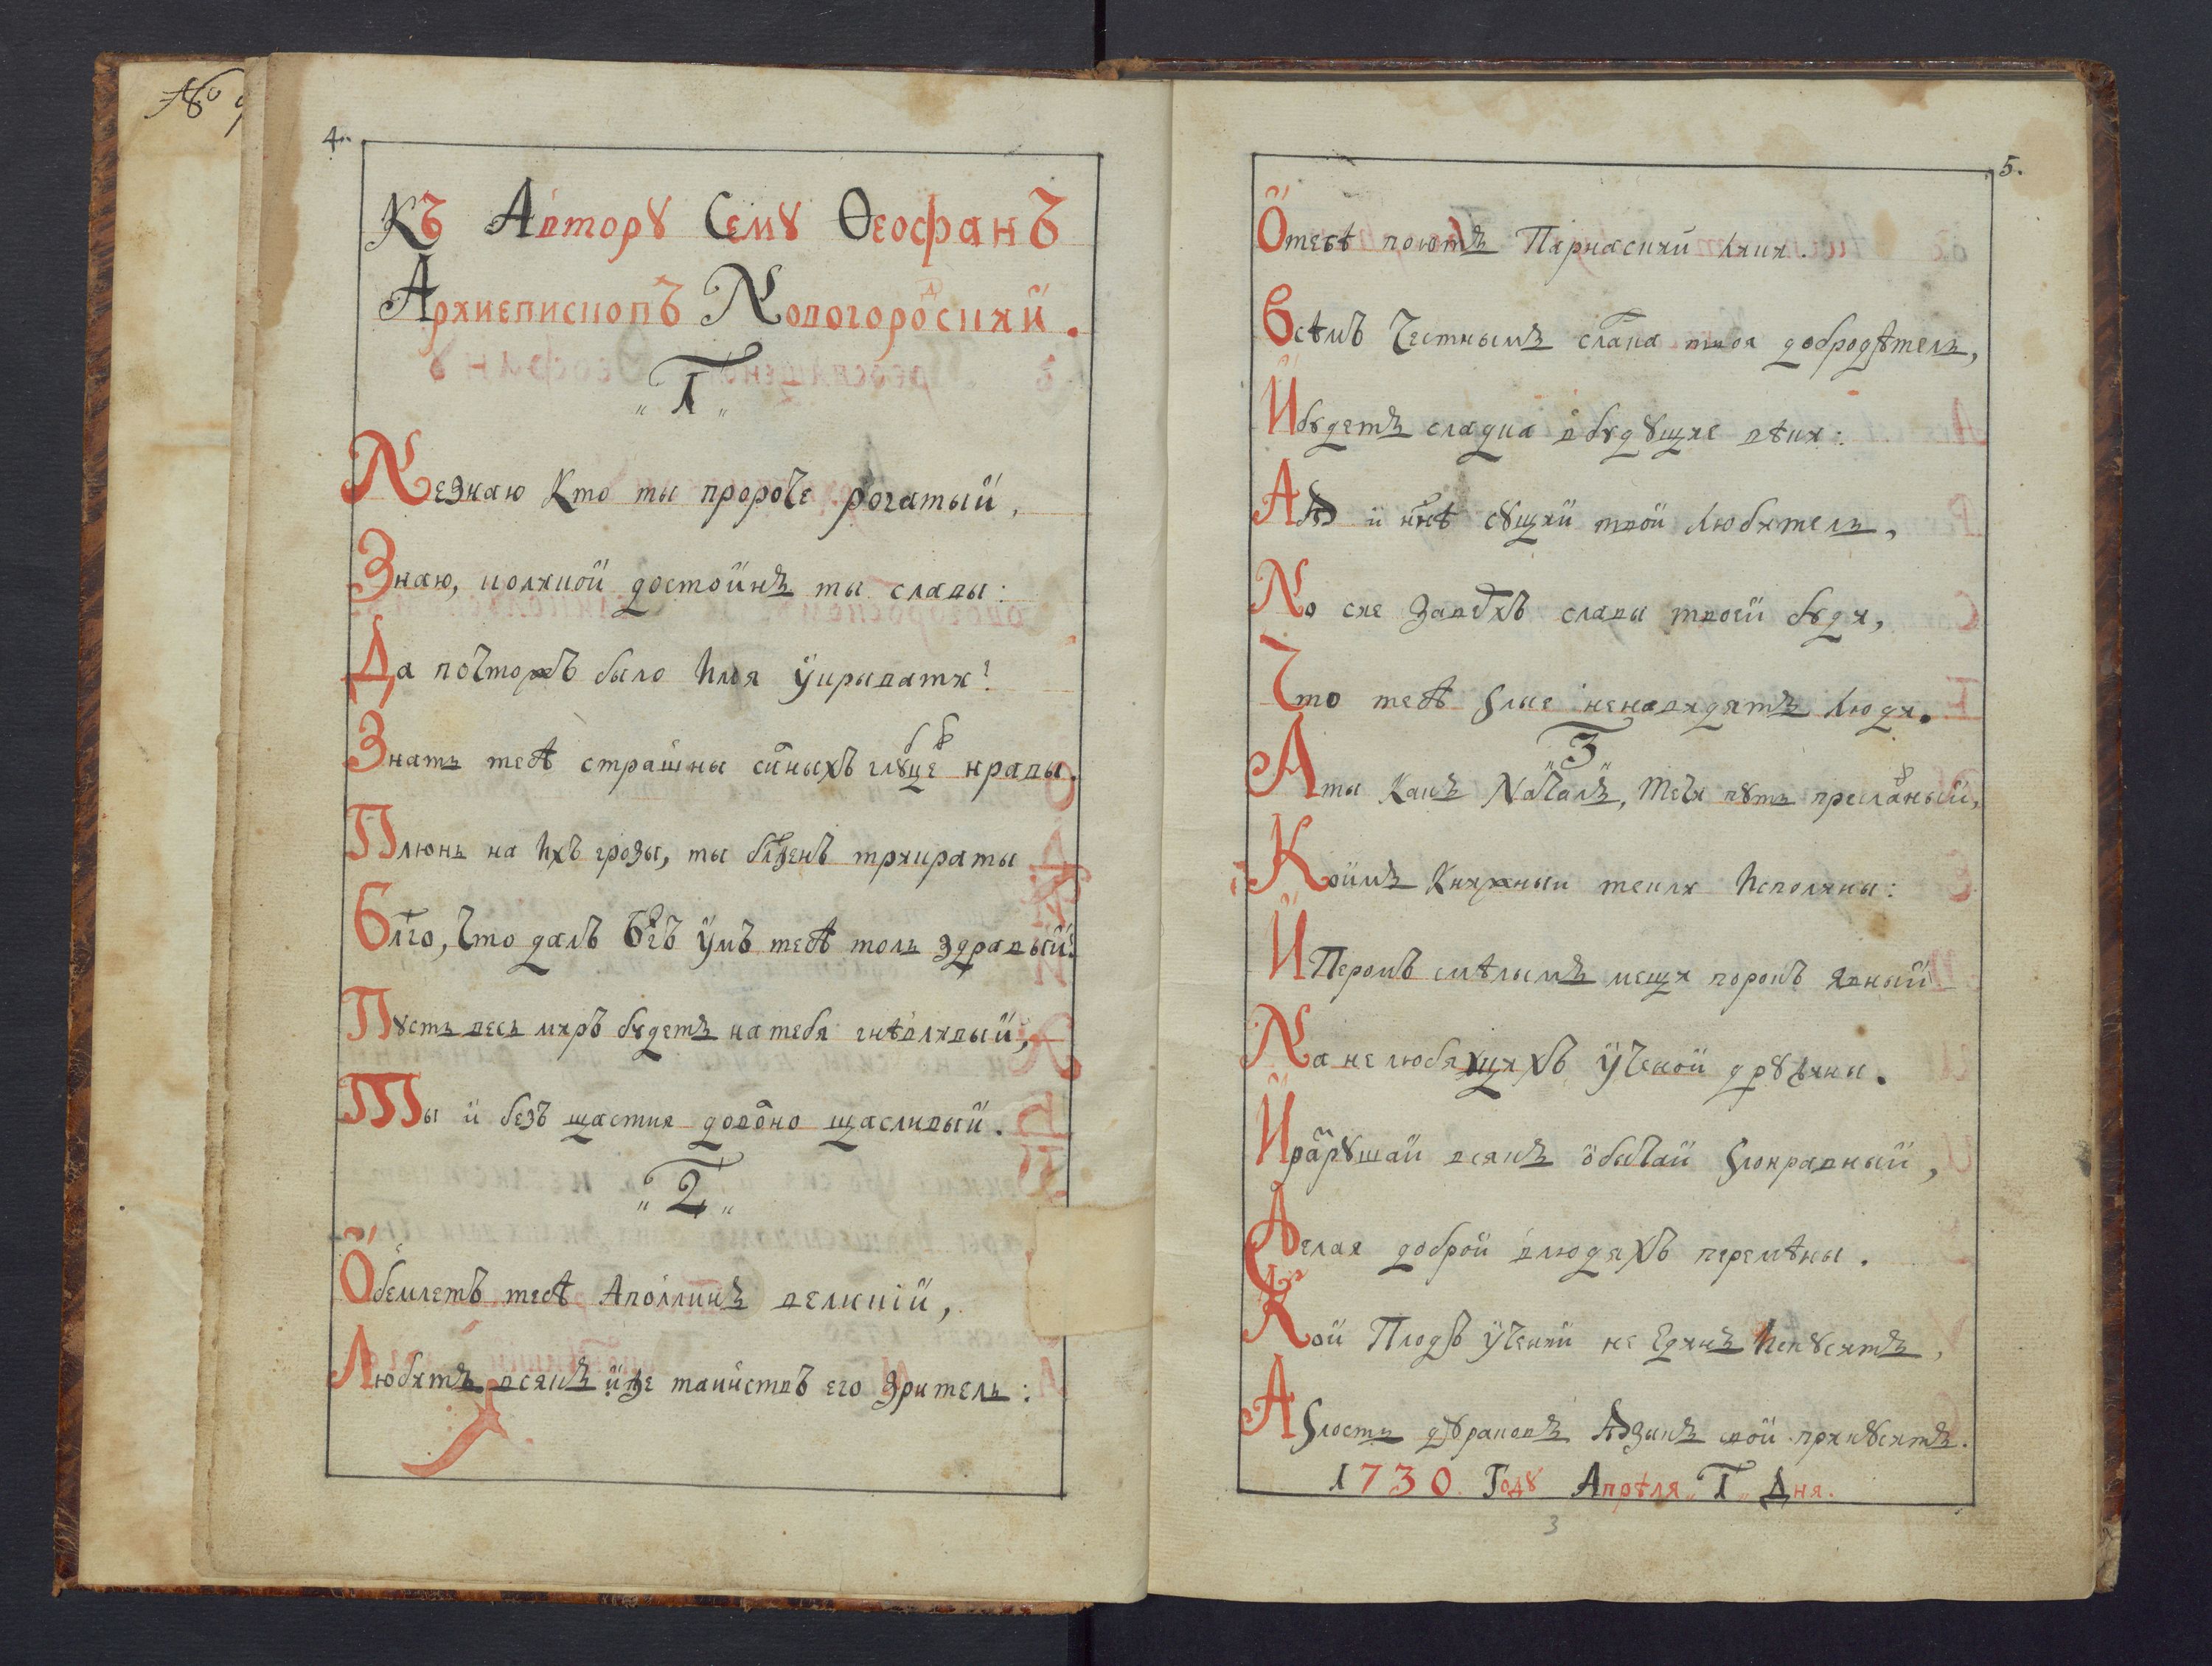 № 9
4
Къ Автору Сему Ѳеофанъ
Архиепископъ Новогородский.
„1„
Незнаю кто ты пророче рогатый,
Знаю, коликой достоинъ ты славы:
Да почтожъ было имя укрывати?
Знать тебѣ страшны силныхъ глупцевъ нравы.
Плюнь на ихъ грозы, ты блаженъ трикраты
Блго, что далъ Бгъ умъ тебѣ толь здравый!
Пусть весь миръ будетъ на тебя гнѣвливый,
Ты и безъ щастия довольно щасливый.
„2„
Обемлетъ тебѣ Аполлинъ великій,
Любитъ всякъ иже таинствъ его зритель:
5.
О тебѣ поютъ Парнаский лики.
Всѣмъ честнымъ слатка твоя добродѣтель,
И будетъ сладка в будущие вѣки:
А я и ннѣ сущий твой любитель,
Но сие за верхъ славы твоей буди,
Что тебѣ ѕлые ненавидятъ люди.
„3„
А ты какъ началъ, течи путь преславный,
Коимъ книжныи текли исполины:
И перомъ смѣлымъ мещи порокъ явный
На нелюбящихъ ученой дружины.
И разрушай всякъ обычай ѕлонравный,
Желая доброй в людяхъ перемѣны.
Кой плодъ учений не единъ искуситъ,
А ѕлость дураковъ языкъ свой прикуситъ.
1730 Году Апрѣля „1„ Дня.
3